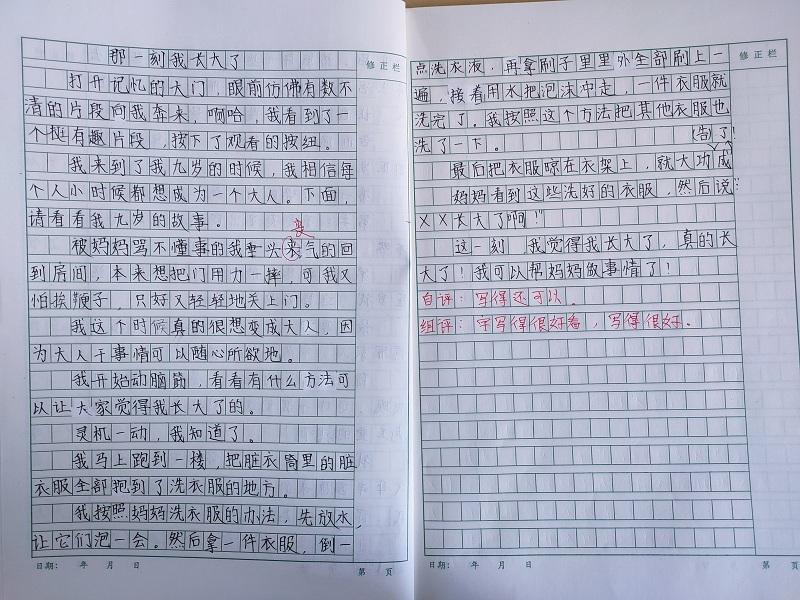 那一刻我长大了
修正栏
打开记忆的大门，眼前仿佛有数不
清的片段向我奔来，啊哈，我看到了一
个挺有趣片段，按下了观看的按纽。
我来到了我九岁的时候，我相信每
个人小时候都想成为一个大人。下面，
请看看我九岁的故事。
丧
被妈妈骂不懂事的我垂头来气的回
到房间，本来想把门用力一摔，可我又
怕挨鞭子，只好又轻轻地关上门。
我这个时候真的很想变成大人，因
为大人干事情可以随心所欲地。
我开始动脑筋，看看有什么方法可
以让大家觉得我长大了的。
灵机一动，我知道了。
我马上跑到一楼，把脏衣筒里的脏
衣服全部抱到了洗衣服的地方。
我按照妈妈洗衣服的办法，先放水，
让它们泡一会。然后拿一件衣服，倒一
日期： 年 月 日
第 页
点洗衣液，再拿刷子里里外全部刷上一
修正栏
遍，接着用水把泡沫冲走，一件衣服就
洗完了。我按照这个方法把其他衣服也
洗了一下。
告了！
最后把衣服晾在衣架上，就大功成
妈妈看到这些洗好的衣服，然后说：
“XX长大了啊！”
这一刻，我觉得我长大了，真的长
大了！我可以帮妈妈做事情了！
自评：写得还可以。
组评：字写得很好看，写得很好。
日期： 年 月 日
第 页